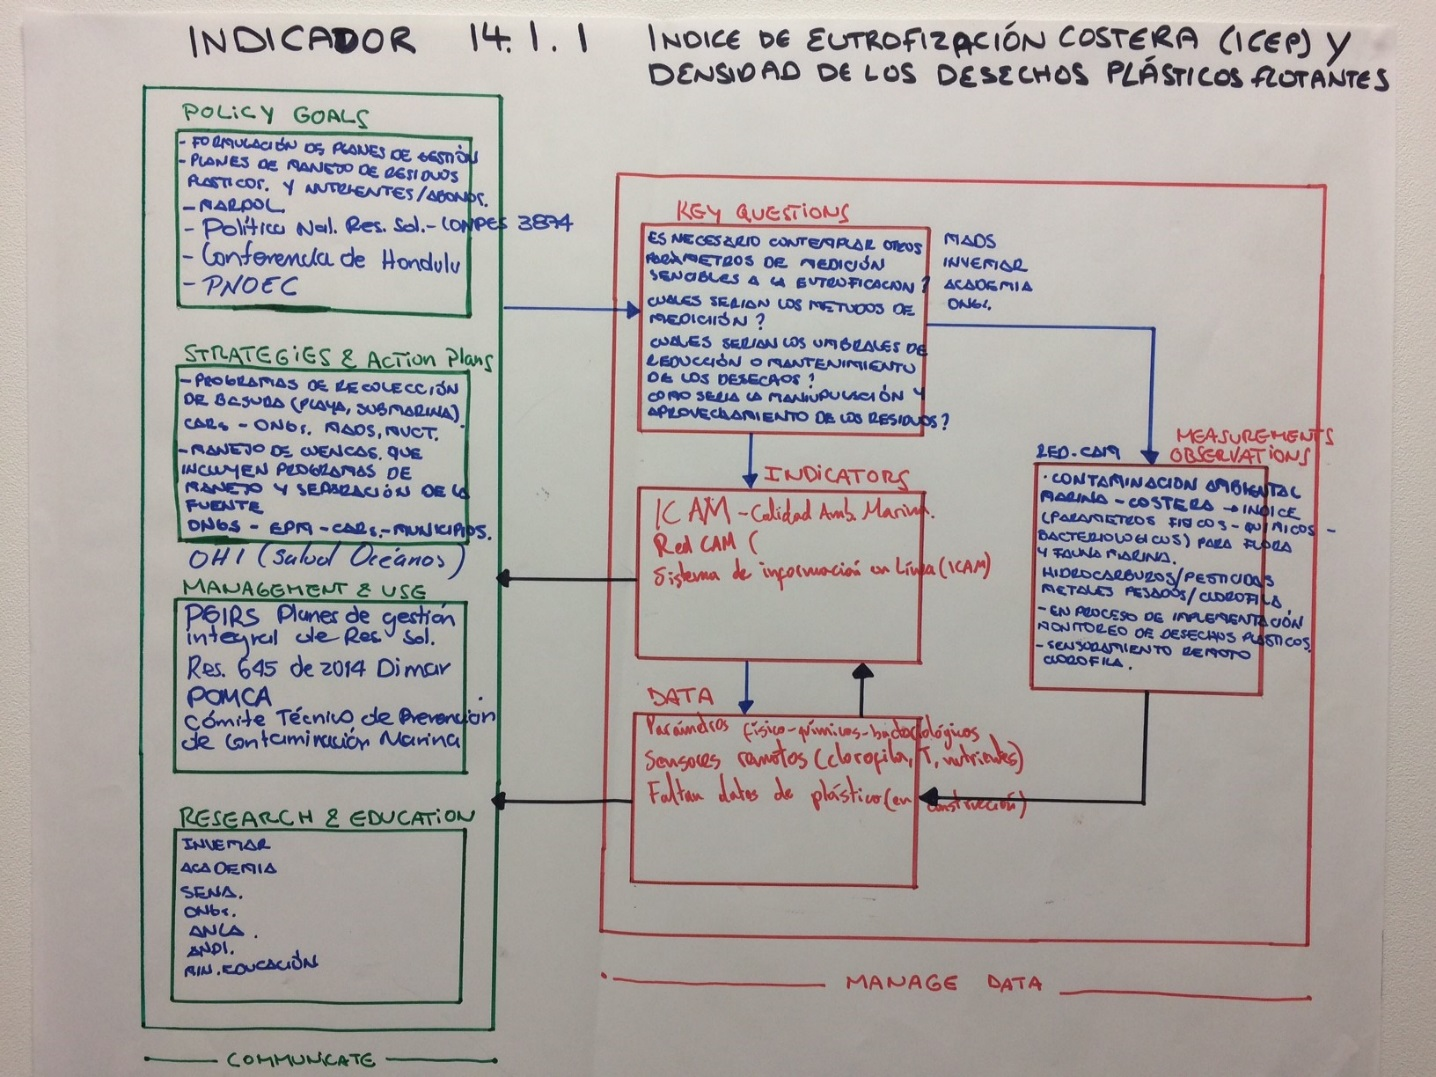 INDICADOR 14.1.1 INDICE DE EUTROFIZACIÓN COSTERA (ICEP) Y
DENSIDAD DE LOS DESECHOS PLÁSTICOS FLOTANTES
POLICY GOALS
- FORMULACIÓN DE PLANES DE GESTIÓN
- PLANES DE MANEJO DE RESIDUOS
PLASTICOS. Y NUTRIENTES/ABONOS.
- MARPOL
- Política Nal. Res. Sol. - CONPES 3874
- Conferencia de Honolulu
- PNOEC
STRATEGIES & ACTION Plans
- PROGRAMAS DE RECOLECCIÓN
DE BASURA (PLAYA, SUBMARINA).
CARs - ONGs. MADS, MVCT.
- MANEJO DE CUENCAS. QUE
INCLUYEN PROGRAMAS DE
MANEJO Y SEPARACIÓN DE LA
FUENTE
ONGS - EPM - CARs. - MUNICIPIOS.
OHI (Salud Océanos)
MANAGEMENT & USE
PGIRS Planes de gestión
integral de Res. Sol.
Res. 645 de 2014 Dimar
POMCA
Cómite Técnico de Prevención
de Contaminación Marina
RESEARCH & EDUCATION
INVEMAR
ACADEMIA
SENA.
ONGs.
ANLA.
ANDI.
MIN. EDUCACIÓN
COMMUNICATE
KEY QUESTIONS
ES NECESARIO CONTEMPLAR OTROS
PARÁMETROS DE MEDICIÓN
SENCIBLES A LA EUTROFICACION?
CUALES SERIAN LOS METODOS DE
MEDICIÓN?
CUALES SERIAN LOS UMBRALES DE
REDUCCIÓN O MANTENIMIENTO
DE LOS DESECHOS?
COMO SERIA LA MANIUPULACIÓN Y
APROVECHAMIENTO DE LOS RESIDUOS?
MADS
INVEMAR
ACADEMIA
ONGs.
INDICATORS
ICAM - Calidad Amb. Marina.
Red CAM (
Sistema de información en Línea (ICAM)
DATA
Parámetros físico-químicos-bacteriológicos
Sensores remotos (clorofila, T, nutrientes)
Faltan datos de plástico (en construcción)
MEASUREMENTS
OBSERVATIONS
RED.CAM
· CONTAMINACIÓN AMBIENTAL
MARINA - COSTERA → INDICE
(PARAMETROS FISICOS - QUIMICOS -
BACTERIOLOGICOS) PARA FLORA
Y FAUNA MARINA.
HIDROCARBUROS/PESTICIDAS
METALES PESADOS/CLOROFILA.
- EN PROCESO DE IMPLEMENTACIÓN
MONITOREO DE DESECHOS PLÁSTICOS.
- SENSORAMIENTO REMOTO
CLOROFILA.
MANAGE DATA